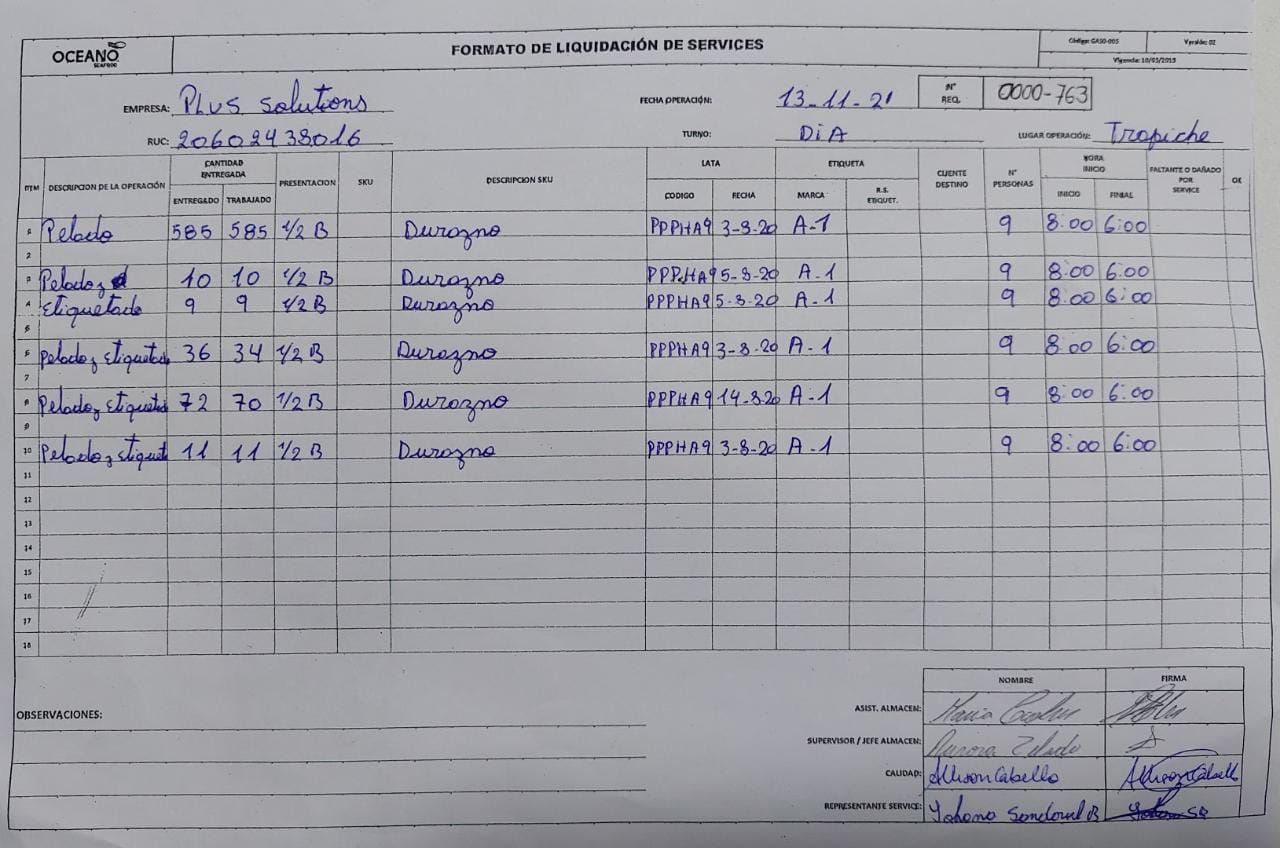 OCEANO
SEAFOOD
FORMATO DE LIQUIDACIÓN DE SERVICES
Código: GASO-005 Versión: 02
Vigencia: 10/03/2019
EMPRESA: PLUS Solutions FECHA OPERACIÓN: 13-11-21 N° REQ. 0000-763
RUC: 20602438016 TURNO: DiA LUGAR OPERACIÓN: Trapiche
ITM DESCRIPCION DE LA OPERACIÓN CANTIDAD ENTREGADA PRESENTACION SKU DESCRIPCION SKU LATA ETIQUETA CLIENTE DESTINO N° PERSONAS HORA INICIO FALTANTE O DAÑADO POR SERVICE OK
ENTREGADO TRABAJADO CODIGO FECHA MARCA R.S. ETIQUET. INICIO FINIAL
1 Pelado 585 585 1/2 B Durazno PPPHA9 3-8-20 A-1 9 8:00 6:00
2
3 Pelado y 10 10 1/2 B Durazno PPPHA9 5-8-20 A-1 9 8:00 6:00
4 Etiquetado 9 9 1/2 B Durazno PPPHA9 5-8-20 A-1 9 8:00 6:00
5
6 Pelado y Etiquetad 36 34 1/2 B Durazno PPPHA9 3-8-20 A-1 9 8:00 6:00
7
8 Pelado y Etiquetad 72 70 1/2 B Durazno PPPHA9 14-8-20 A-1 9 8:00 6:00
9
10 Pelado y Etiquet 11 11 1/2 B Durazno PPPHA9 3-8-20 A-1 9 8:00 6:00
11
12
13
14
15
16
17
18
NOMBRE FIRMA
OBSERVACIONES:
ASIST. ALMACEN: Maria
SUPERVISOR / JEFE ALMACEN: Aurora
CALIDAD: Allison Cabello Allison Cabello
REPRESENTANTE SERVICE: Yohana Sandoval B